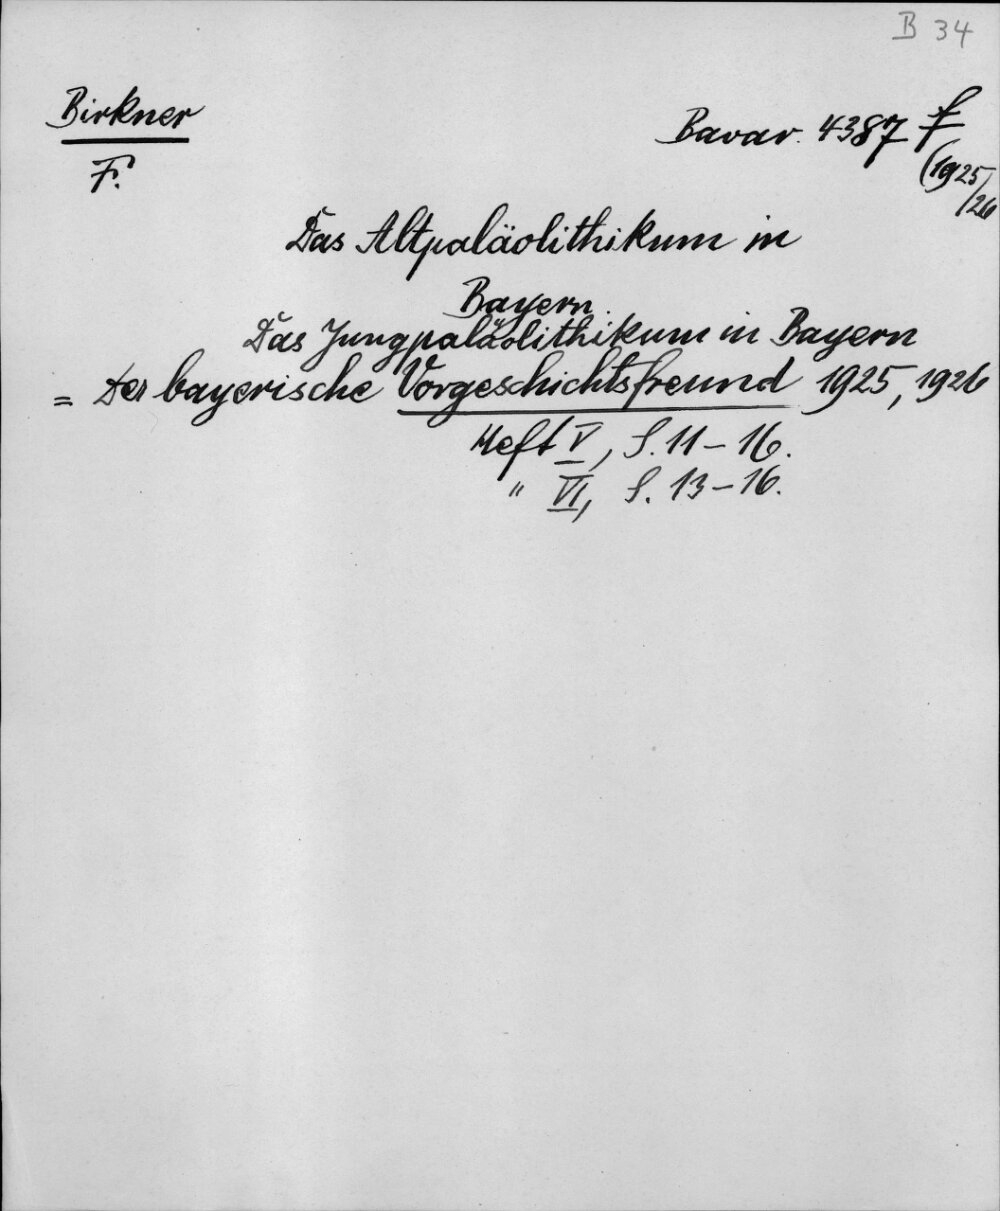 B 34
Birkner
F.
Bavar. 4387 f
(1925/26
Das Altpaläolithikum in
Bayern.
Das Jungpaläolithikum in Bayern
= Der bayerische Vorgeschichtsfreund 1925, 1926
Heft V, S. 11-16.
" VI, S. 13-16.